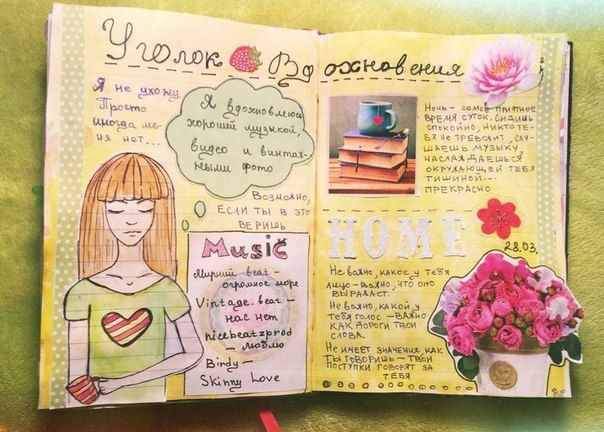 Уголок Вдохновения
Я не ухожу.
Просто
иногда ме-
ня нет...
Я вдохновляюсь
хорошей музыкой,
видео и винтаж-
ными фото
Возможно,
если ты в это
веришь
Music
Мирный beat -
огромное море
Vintage. beat -
нас нет
nicebeatzprod
- люблю
Birdy -
Skinny Love
Ночь - самое приятное
время суток. Сидишь
спокойно, никто те-
бя не тревожит, слу-
шаешь музыку
наслаждаешься
окружающей тебя
тишиной...
Прекрасно
HOME
28.03.
Не важно, какое у тебя
лицо - важно, что оно
выражает.
Не важно, какой у
тебя голос - важно
как дороги твои
слова.
Не имеет значения как
ты говоришь - твои
поступки говорят за
тебя